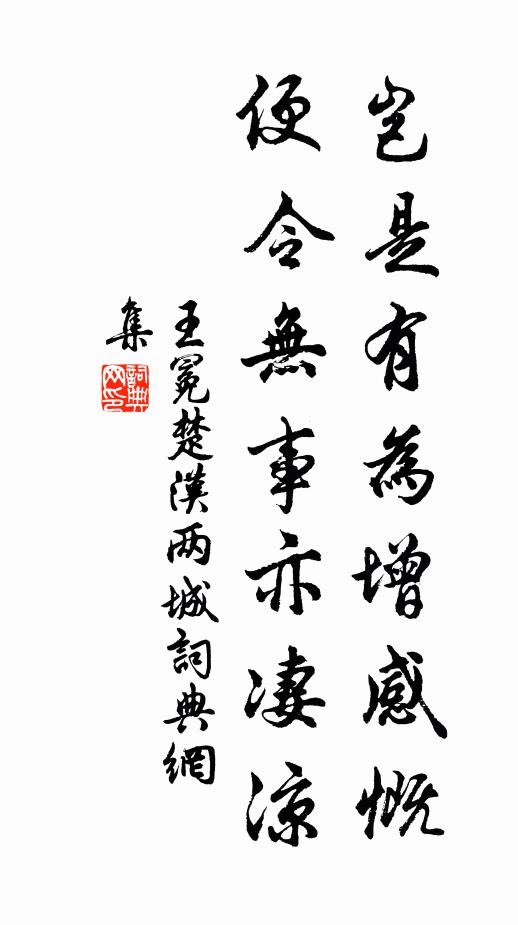 豈是有為增感慨
便令無事亦凄涼
王冕楚漢两城詞典網
集
詞典
网印